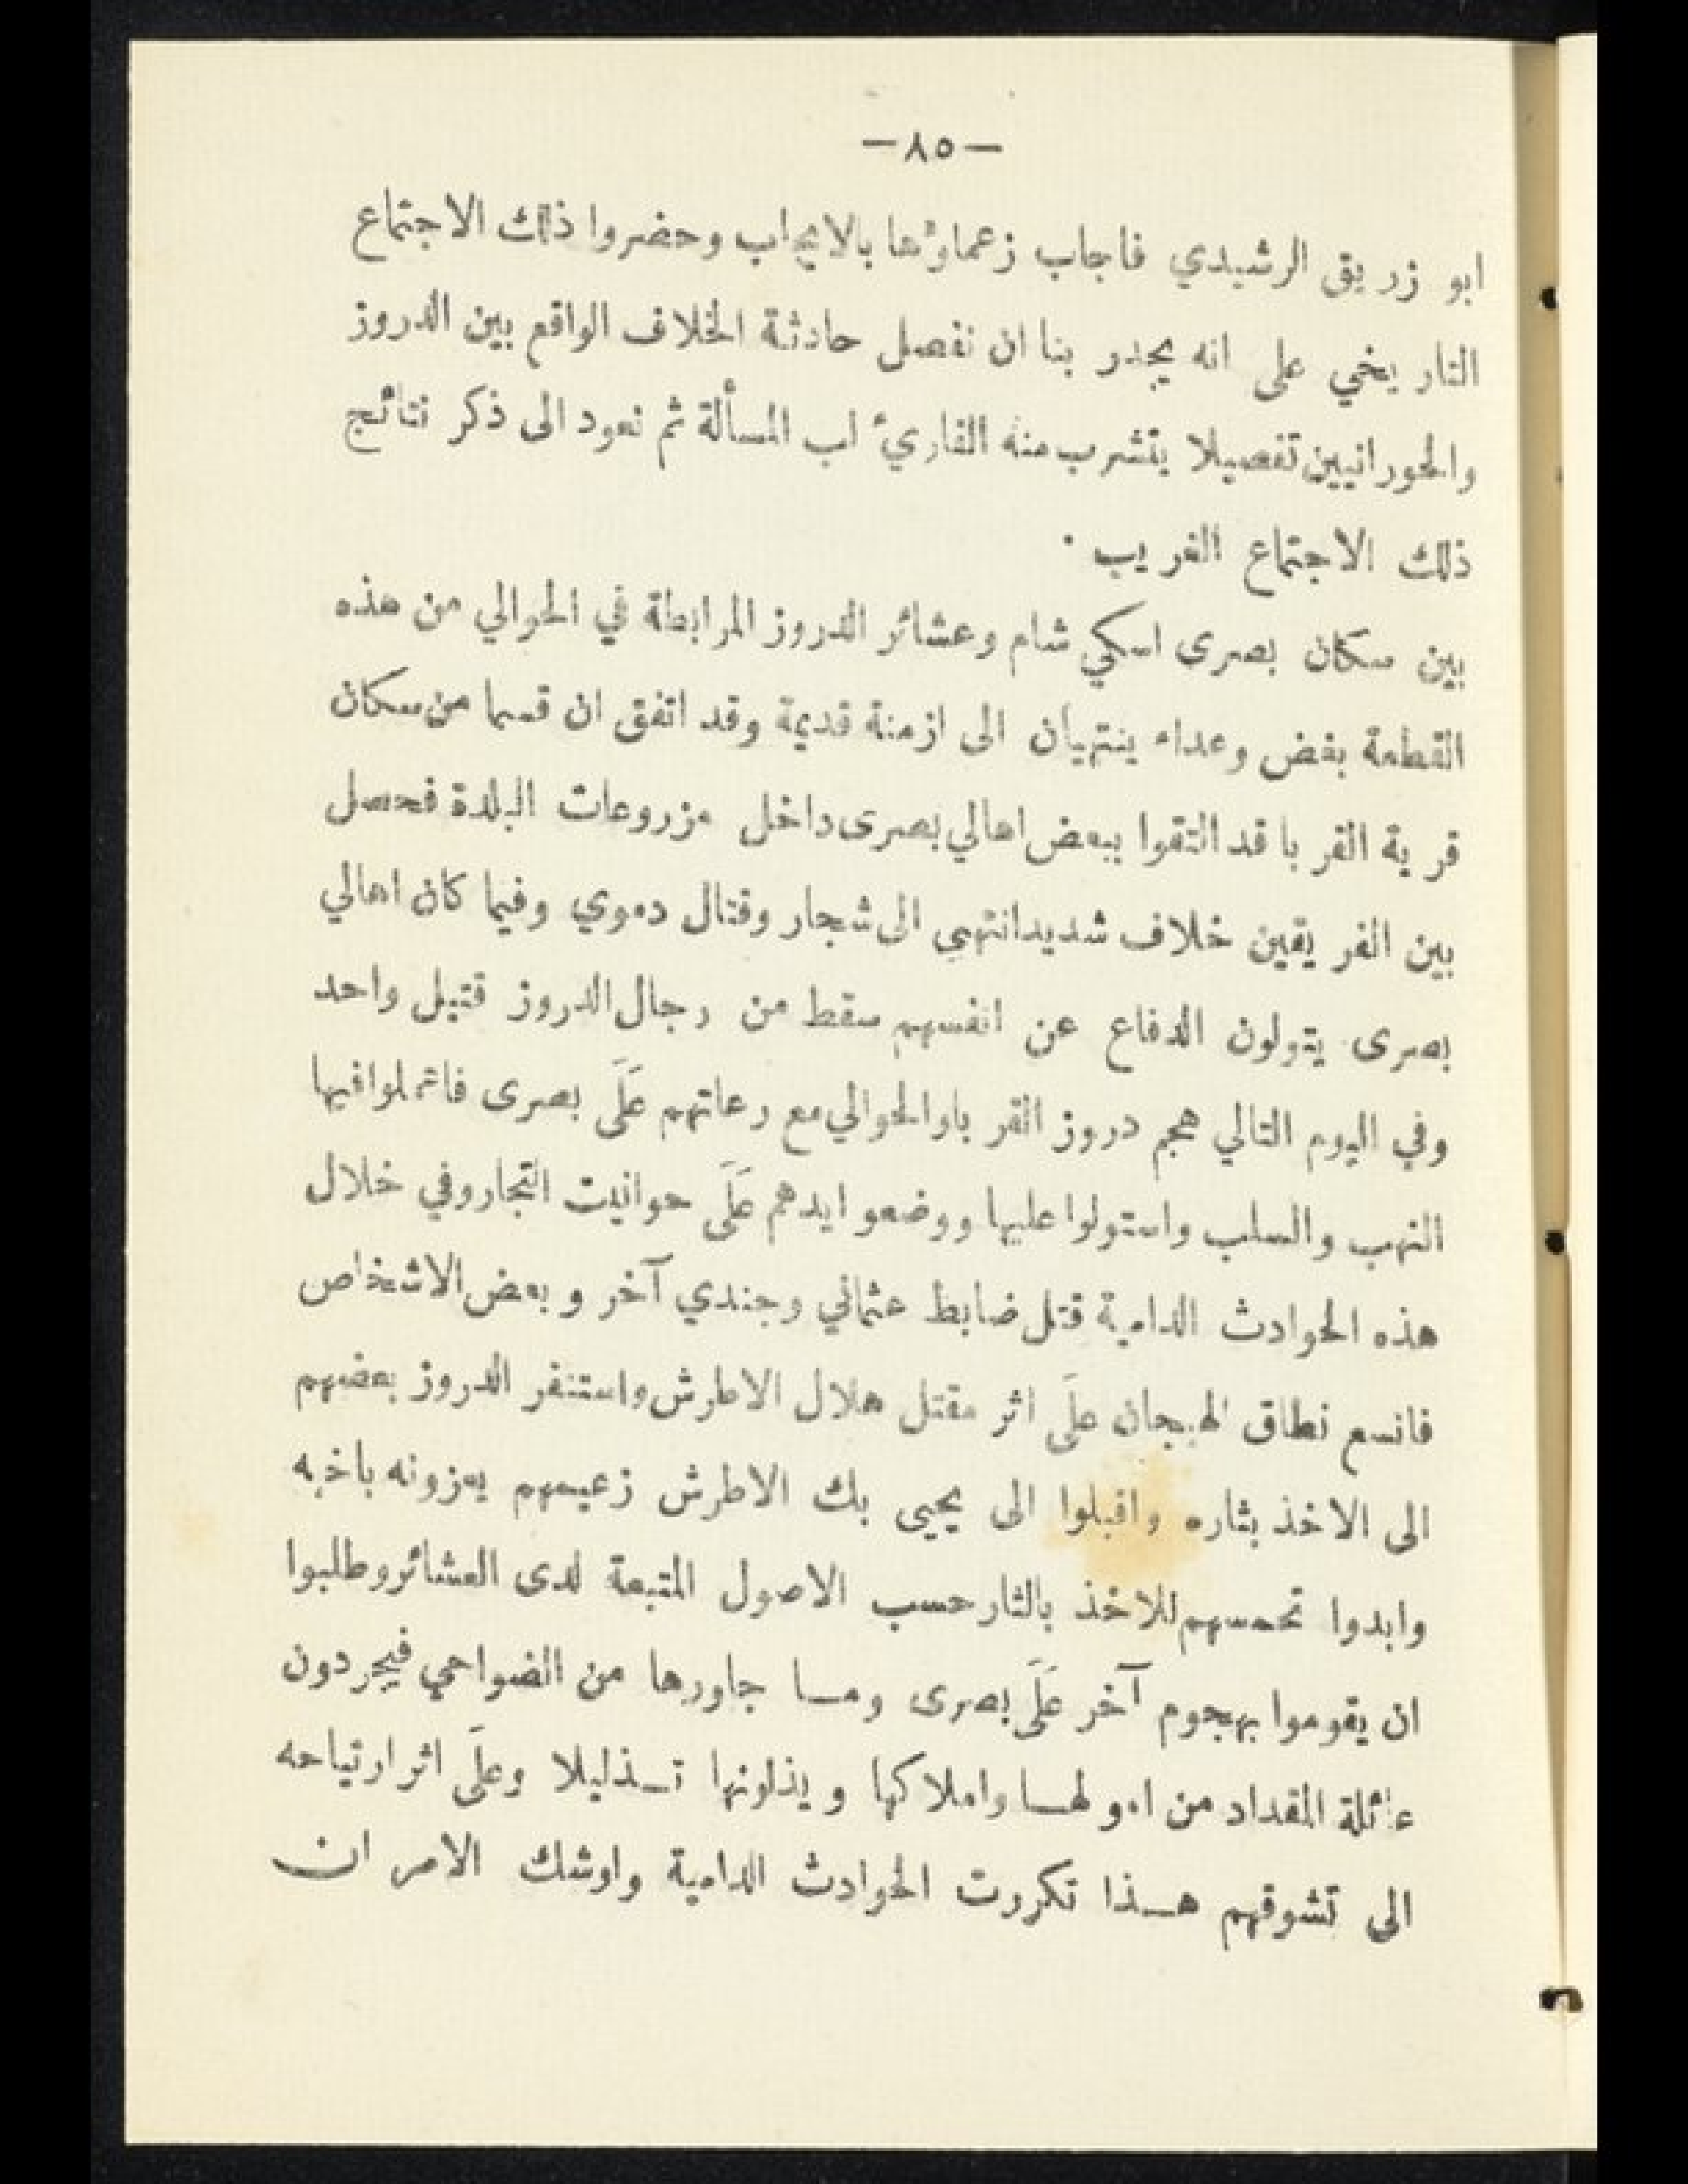 —٨٥—
ابو زريق الرشيدي فاجاب زعماؤها بالايجاب وحضروا ذلك الاجتماع
التار يخي على انه يجدر بنا ان نفصل حادثة الخلاف الواقع بين الدروز
والحورانيين تفصيلا يتشرب منه القارىء لب المسألة ثم نعود الى ذكر نتائج
ذلك الاجتماع الغريب ·
بين سكان بصرى اسكي شام وعشائر الدروز المرابطة في الحوالي من هذه
القطعة بغض وعداء ينتهيان الى ازمنة قديمة وقد اتفق ان قسما من سكان
قرية القريا قد التقوا ببعض اهالي بصرى داخل مزروعات البلدة فحصل
بين الفريقين خلاف شديد انتهى الى شجار وقتال دموي وفيما كان اهالي
بصرى يتولون الدفاع عن انفسهم سقط من رجال الدروز قتيل واحد
وفي اليوم التالي هجم دروز القريا والحوالي مع رعاتهم عَلَى بصرى فاعملوا فيها
النهب والسلب واستولوا عليها ووضعو ايدهم عَلَى حوانيت التجار وفي خلال
هذه الحوادث الدامية قتل ضابط عثماني وجندي آخر وبعض الاشخاص
فاتسع نطاق الهيجان علَى اثر مقتل هلال الاطرش واستنفر الدروز بعضهم
الى الاخذ بثاره واقبلوا الى يحيى بك الاطرش زعيمهم يعزونه باخيه
وابدوا تحمسهم للاخذ بالثار حسب الاصول المتبعة لدى العشائر وطلبوا
ان يقوموا بهجوم آخر عَلَى بصرى ومــا جاورها من الضواحي فيجردون
عائلة المقداد من امو لهــا واملاكها ويذلونها تــذليلا وعلَى اثر ارتياحه
الى تشوقهم هــذا تكررت الحوادث الدامية واوشك الامر ان